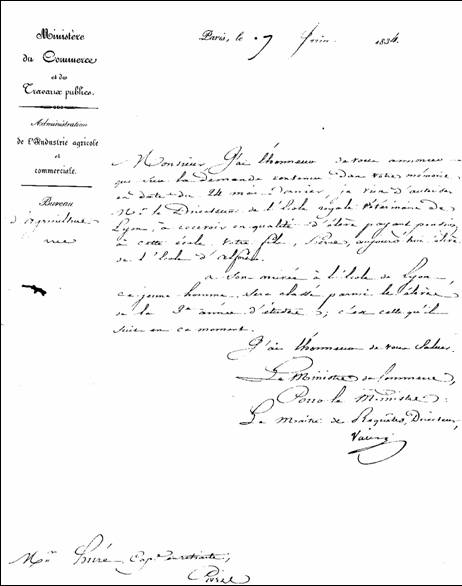 Ministère
du Commerce
et des
Travaux publics.
Administration
de l'Industrie agricole
et
commerciale.
Bureau
d'Agriculture
Paris, le 7 Juin 1834.
Monsieur, J'ai l'honneur de vous annoncer
que sur la demande contenue dans votre mémoire
en date du 24 mai dernier, je viens d'autoriser
Mr. le Directeur de l'Ecole royale Vétérinaire de
Lyon, à recevoir en qualité d'élève payant pension
à cette école votre fils, aujourd'hui élève
de l'Ecole d'Alfort.
a son arrivée à l'école de Lyon
ce jeune homme sera classé parmi les élèves
de la 2e année d'études; c'est celle qu'il
suit en ce moment.
J'ai l'honneur de vous saluer.
Le Ministre du Commerce,
Pour le Ministre
Le Maître de Requêtes, Directeur,
Mr. Capne en retraite,